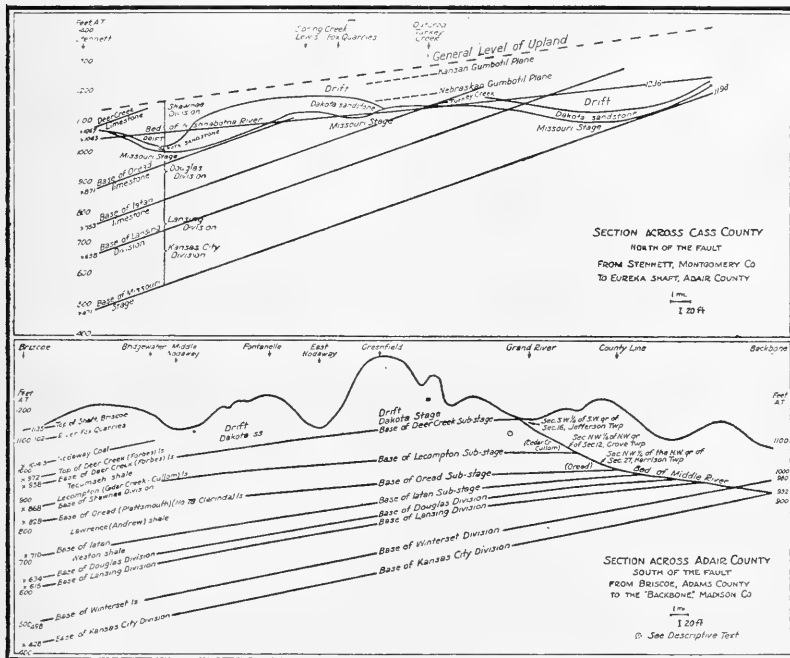 Feet AT
1400
Stennett
Spring Creek
Lewis Fox Quarries
Turkey
Creek
General Level of Upland
1300
Kansan Gumbotil Plane
1200
Nebraskan Gumbotil Plane
Drift
Dakota sandstone
Turkey Creek
1236
1198
Drift
Dakota sandstone
Missouri Stage
Missouri Stage
1100
Deer Creek
Limestone
Shawnee
Division
Bed of Nishnabotna River
DRIFT
SANDSTONE
1000
Missouri Stage
900
Base of Oread
limestone
Douglas
Division
800
Base of Iatan
limestone
700
Base of Lansing
Division
Lansing
Division
600
Kansas City
Division
500
Base of Missouri
Stage
400
SECTION ACROSS CASS COUNTY
NORTH OF THE FAULT
FROM STENNETT, MONTGOMERY CO
TO EUREKA SHAFT, ADAIR COUNTY
1 mi.
I 20 ft
Briscoe
Bridgewater Middle
Nodaway
Fontanelle
East
Nodaway
Greenfield
Grand River
County Line
Backbone
Feet
AT
1200
1135 Top of Shaft, Briscoe
1100 1102 Fox Quarries
Nodaway Coal
x 972 Top of Deer Creek (Forbes) ls
x 958 Base of Deer Creek (Forbes) ls
Tecumseh shale
900 Lecompton (Cedar Creek-Cullom) ls
x 868 Base of Shawnee Division
x 828 Base of Oread (Plattsmouth) (No 7B Clarinda) ls
800
Lawrence (Andrew) shale
x 710 Base of Iatan
700 Weston shale
x 634 Base of Douglas Division
x 615 Base of Lansing Division
600
500 498 Base of Winterset ls
x 428 Base of Kansas City Division
400
Drift
Dakota ss
Drift
Dakota Stage
Base of Deer Creek Sub-stage
Base of Lecompton Sub-stage
Base of Oread Sub-stage
Base of Iatan Sub-stage
Base of Douglas Division
Base of Lansing Division
Base of Winterset Division
Base of Kansas City Division
Sec. S.W.¼ of S.W. qr of
Sec. 16, Jefferson Twp
(Cedar Cr
Cullom)
Sec N.W.¼ of N.W. qr
of Sec. 12, Grove Twp
Sec. N.W.¼ of the N.W. qr of
Sec. 27, Harrison Twp
(Oread)
Bed of Middle River
Feet
AT
1100
1000
980
932
900
SECTION ACROSS ADAIR COUNTY
SOUTH OF THE FAULT
FROM BRISCOE, ADAMS COUNTY
TO THE "BACKBONE," MADISON CO
1 mi.
I 20 ft
See Descriptive Text